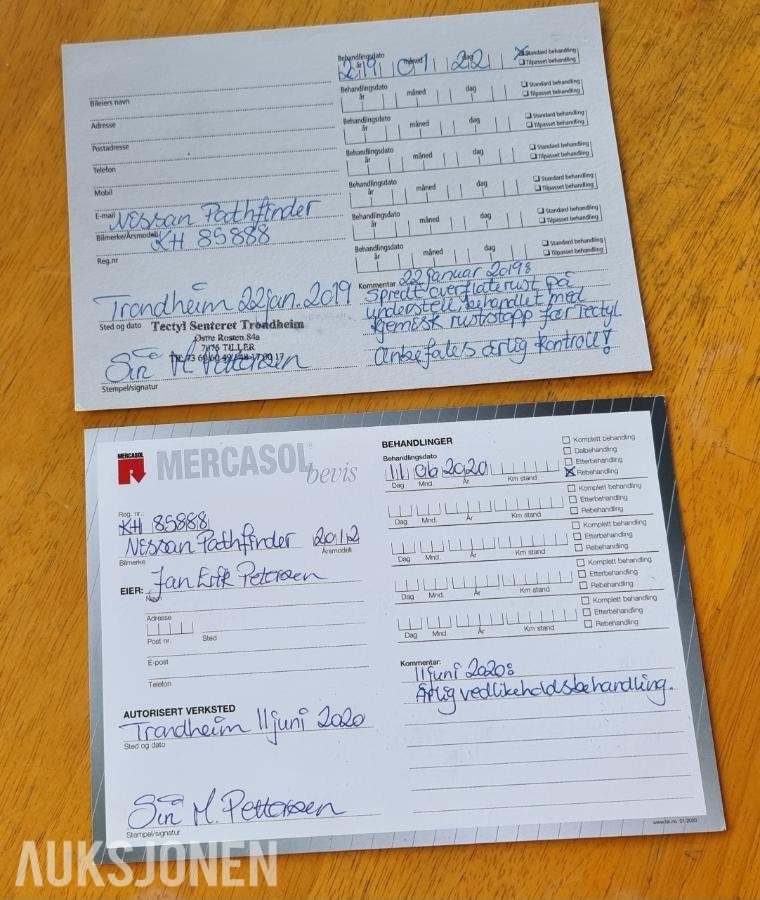 Behandlingsdato
år måned dag
2 19 01 22
Standard behandling
Tilpasset behandling
Behandlingsdato
år måned dag
Standard behandling
Tilpasset behandling
Behandlingsdato
år måned dag
Standard behandling
Tilpasset behandling
Behandlingsdato
år måned dag
Standard behandling
Tilpasset behandling
Behandlingsdato
år måned dag
Standard behandling
Tilpasset behandling
Behandlingsdato
år måned dag
Standard behandling
Tilpasset behandling
Behandlingsdato
år måned dag
Standard behandling
Tilpasset behandling
Bileiers navn
Adresse
Postadresse
Telefon
Mobil
E-mail
Nissan Pathfinder
Bilmerke/Årsmodell
KH 85888
Reg.nr
Trondheim 22 jan. 2019
Sted og dato
Tectyl Senteret Trondheim
Østre Rosten 84a
7075 TILLER
M. Pettersen
Stempel/signatur
Kommentar
22 januar 2019:
Spredt overflaterust på
understell, behandlet med
kjemisk ruststopp før Tectyl.
Anbefales årlig kontroll!
MERCASOL
MERCASOL
bevis
Reg. nr.:
KH 85888
Nissan Pathfinder 2012
Bilmerke Årsmodell
EIER: Jan Erik Petersen
Navn
Adresse
Post nr. Sted
E-post
Telefon
AUTORISERT VERKSTED
Trondheim 11 juni 2020
Sted og dato
M. Pettersen
Stempel/signatur
BEHANDLINGER
Behandlingsdato
11 06 2020
Dag Mnd. År Km stand
Komplett behandling
Delbehandling
Etterbehandling
Rebehandling
Dag Mnd. År Km stand
Komplett behandling
Etterbehandling
Rebehandling
Dag Mnd. År Km stand
Komplett behandling
Etterbehandling
Rebehandling
Dag Mnd. År Km stand
Komplett behandling
Etterbehandling
Rebehandling
Dag Mnd. År Km stand
Komplett behandling
Etterbehandling
Rebehandling
Kommentar:
11 juni 2020:
Årlig vedlikeholdsbehandling.
AUKSJONEN